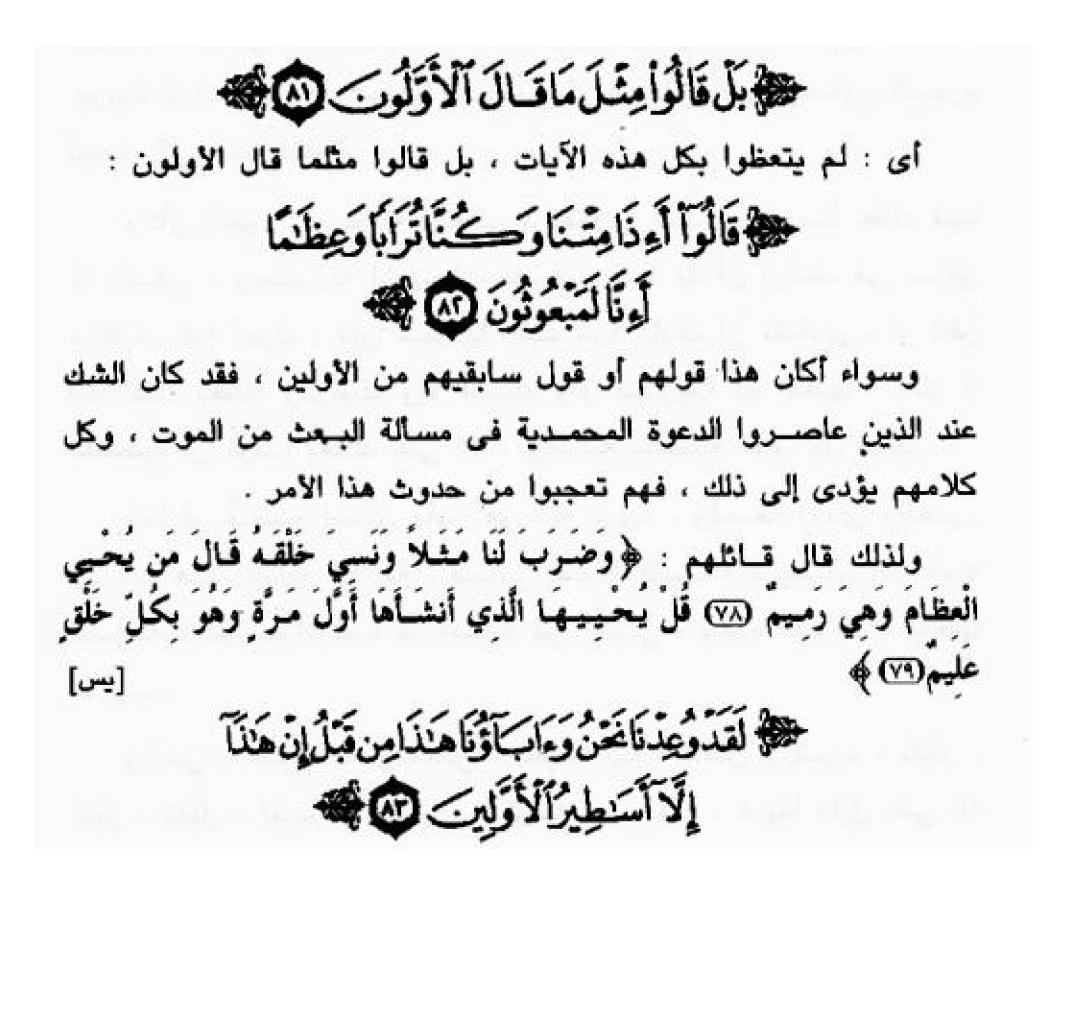 بَلْ قَالُوا۟ مِثْلَ مَا قَالَ ٱلْأَوَّلُونَ ٨١
أى : لم يتعظوا بكل هذه الآيات ، بل قالوا مثلما قال الأولون :
قَالُوٓا۟ أَءِذَا مِتْنَا وَكُنَّا تُرَابًا وَعِظَٰمًا
أَءِنَّا لَمَبْعُوثُونَ ٨٢
وسواء أكان هذا قولهم أو قول سابقيهم من الأولين ، فقد كان الشك
عند الذين عاصروا الدعوة المحمدية فى مسألة البعث من الموت ، وكل
كلامهم يؤدى إلى ذلك ، فهم تعجبوا من حدوث هذا الأمر .
ولذلك قال قائلهم : ﴿ وَضَرَبَ لَنَا مَثَلاً وَنَسِيَ خَلْقَهُ قَالَ مَن يُحْيِي
الْعِظَامَ وَهِيَ رَمِيمٌ (٧٨) قُلْ يُحْيِيهَا الَّذِي أَنشَأَهَا أَوَّلَ مَرَّةٍ وَهُوَ بِكُلِّ خَلْقٍ
عَلِيمٌ (٧٩) ﴾ [يس]
لَقَدْ وُعِدْنَا نَحْنُ وَءَابَآؤُنَا هَٰذَا مِن قَبْلُ إِنْ هَٰذَآ
إِلَّآ أَسَٰطِيرُ ٱلْأَوَّلِينَ ٨٣